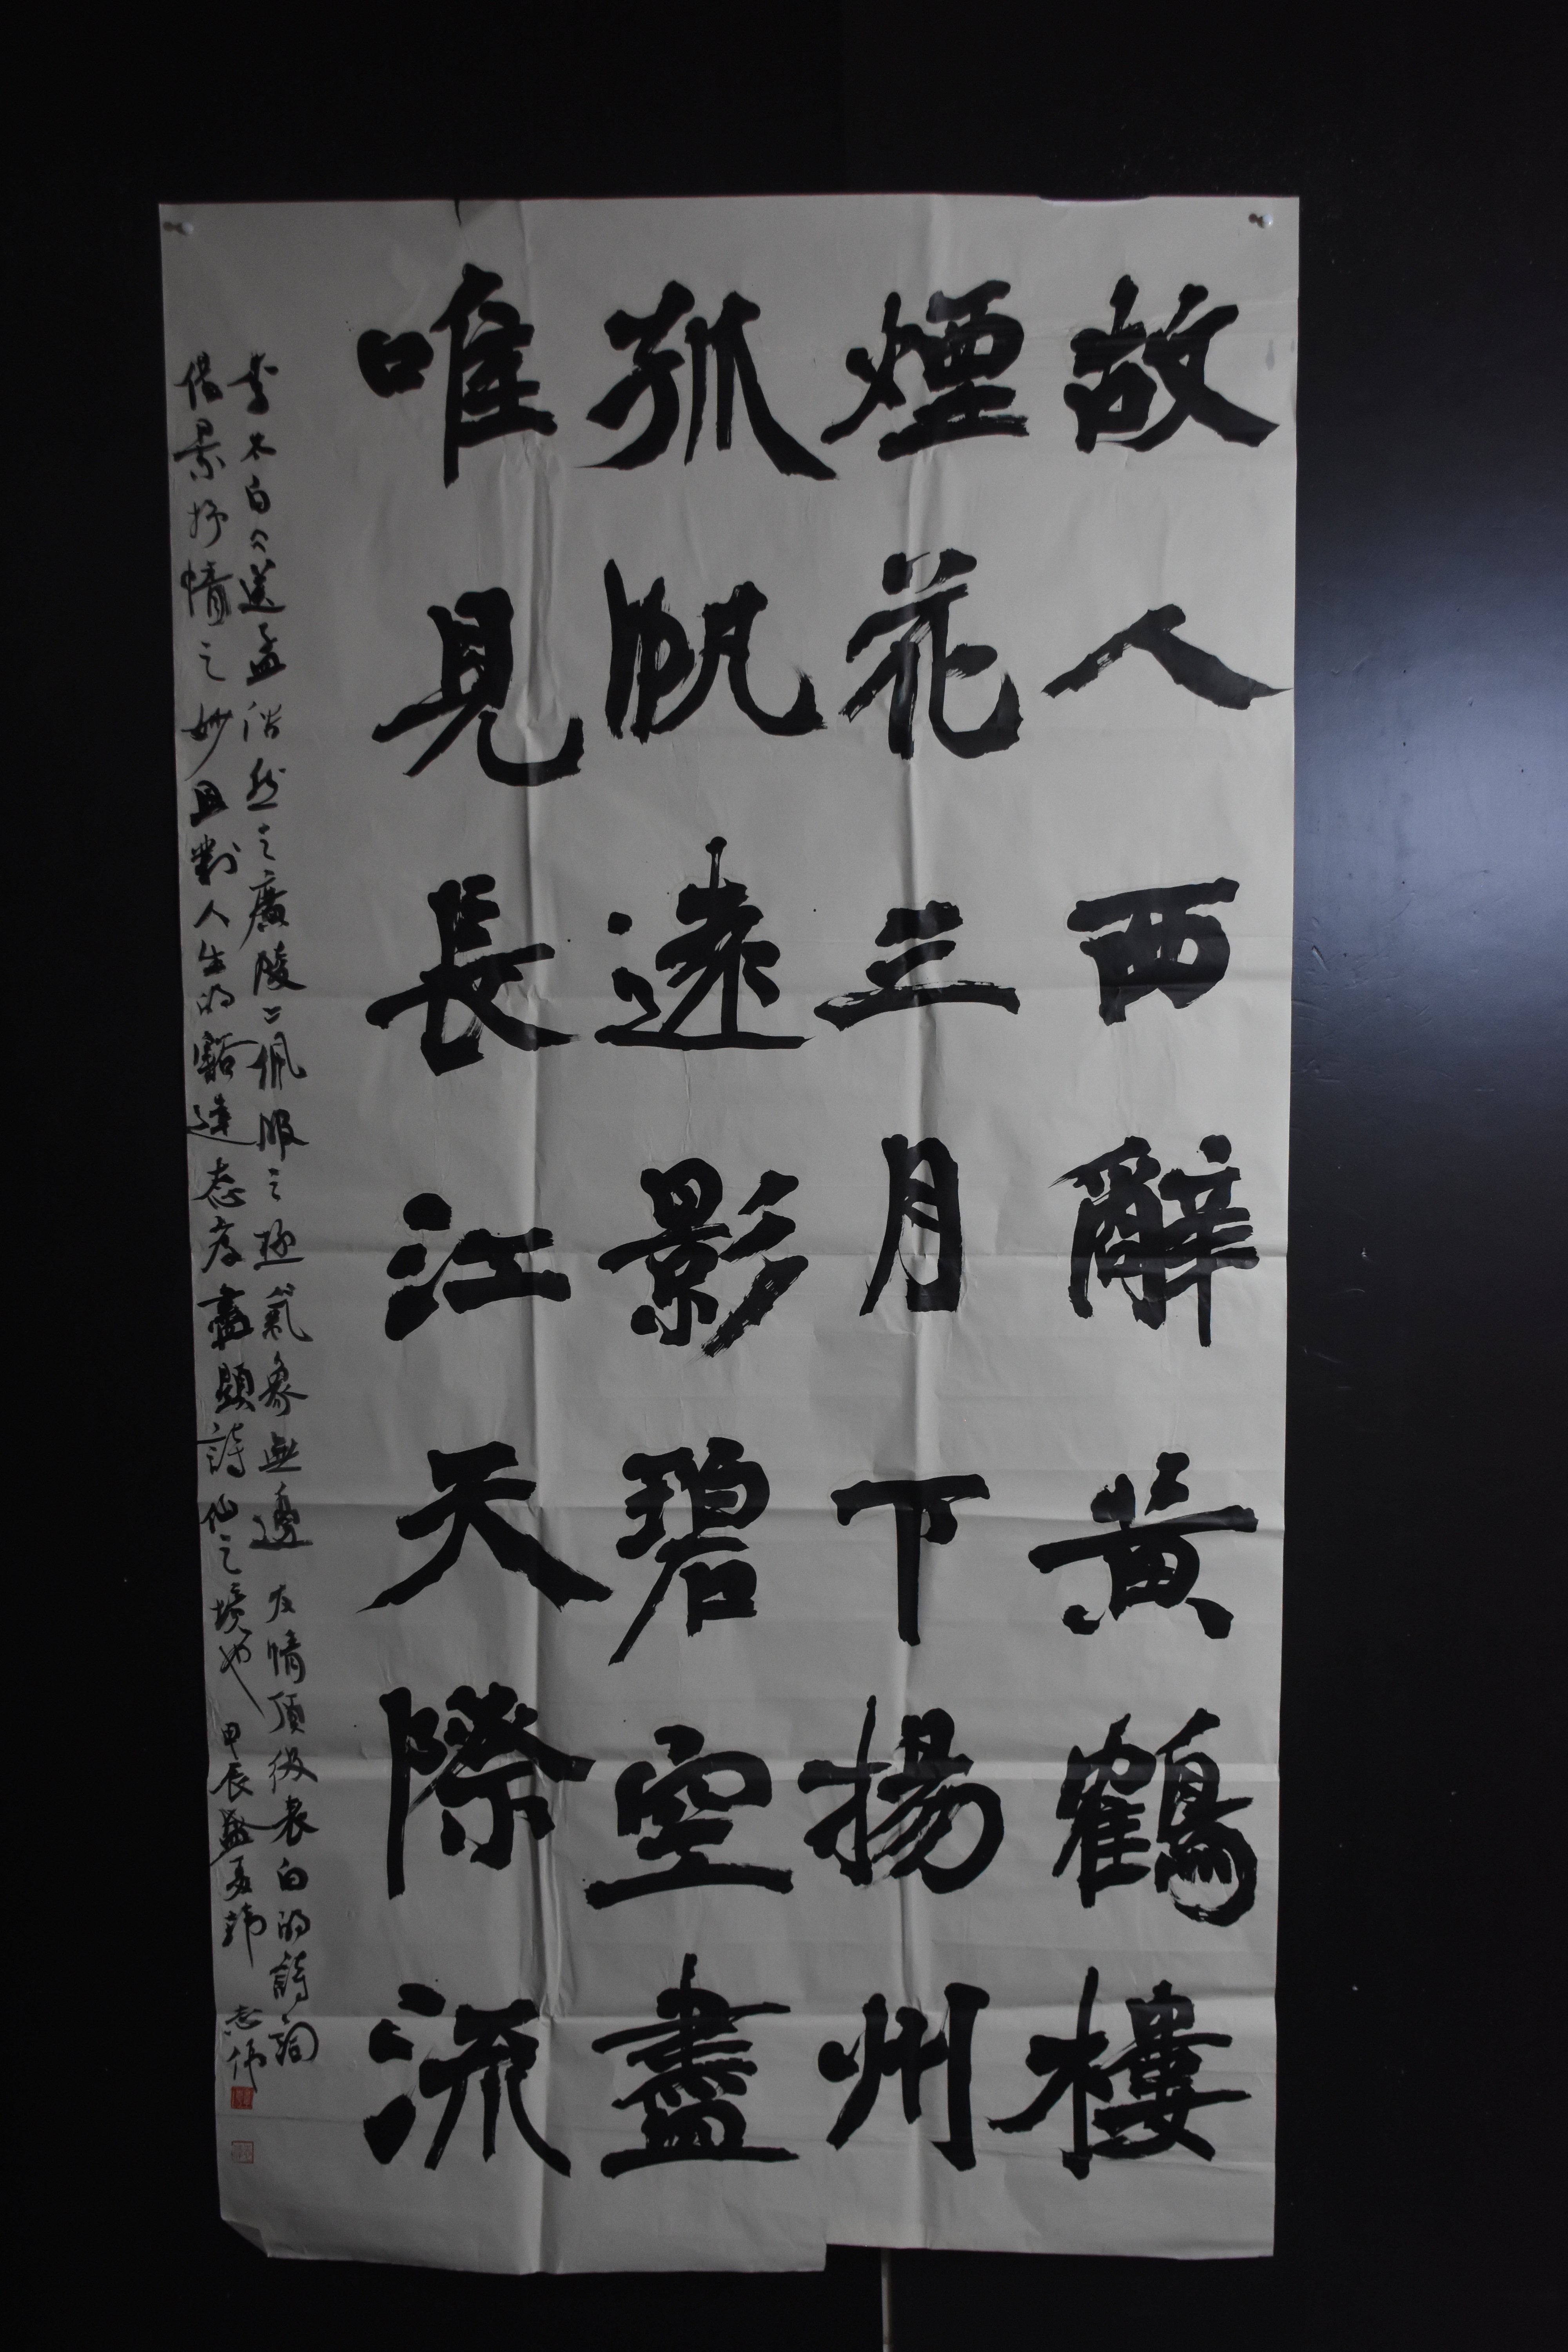 故人西辭黃鶴樓
煙花三月下揚州
孤帆遠影碧空盡
唯見長江天際流
李太白《送孟浩然之廣陵》佩服之極氣象無邊友情頂級表白的詩詞
借景抒情之妙且對人生的豁達态度盡顯詩仙之境也 甲辰盛夏 志伟